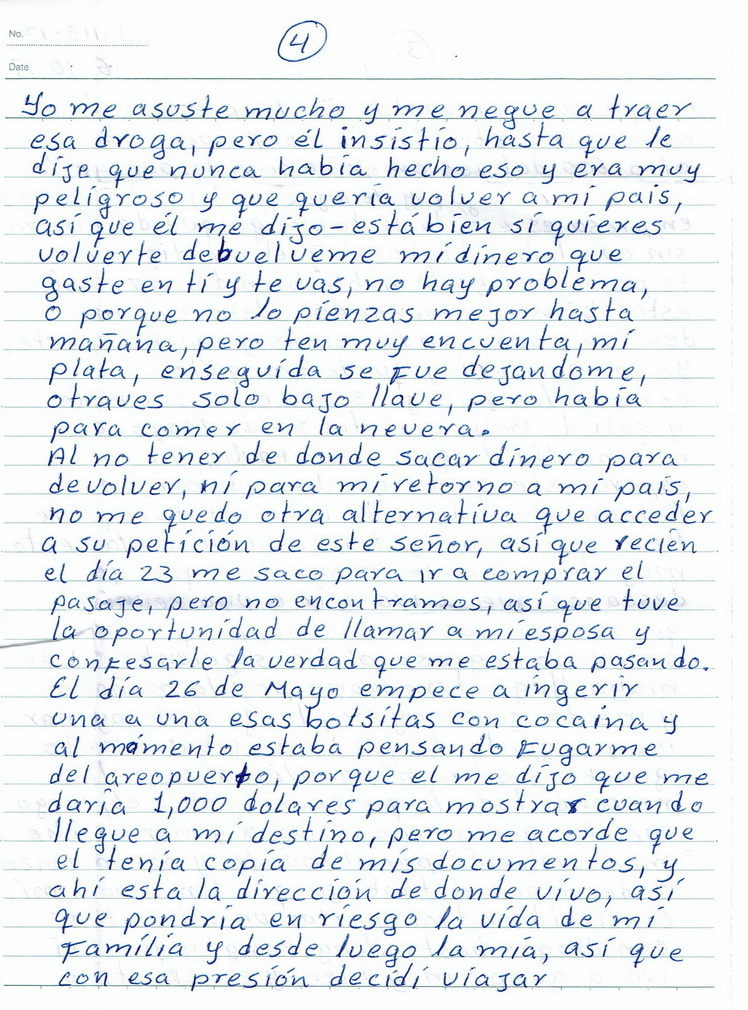 No.
4
Date
Yo me asuste mucho y me negue a traer
esa droga, pero él insistio, hasta que le
dije que nunca había hecho eso y era muy
peligroso y que quería volver a mi país,
así que él me dijo-está bien si quieres
volverte debuelveme mi dinero que
gaste en ti y te vas, no hay problema,
o porque no lo pienzas mejor hasta
mañana, pero ten muy encuenta, mi
plata, enseguida se fue dejandome,
otraves solo bajo llave, pero había
para comer en la nevera.
Al no tener de donde sacar dinero para
devolver, ni para mi retorno a mi país,
no me quedo otra alternativa que acceder
a su petición de este señor, así que recién
el día 23 me saco para ir a comprar el
pasaje, pero no encontramos, así que tuve
la oportunidad de llamar a mi esposa y
confesarle la verdad que me estaba pasando.
El día 26 de Mayo empece a ingerir
una a una esas bolsitas con cocaína y
al momento estaba pensando fugarme
del areopuerto, porque el me dijo que me
daría 1,000 dolares para mostrar cuando
llegue a mi destino, pero me acorde que
el tenía copia de mis documentos, y
ahí esta la dirección de donde vivo, así
que pondría en riesgo la vida de mi
familia y desde luego la mía, así que
con esa presión decidí viajar